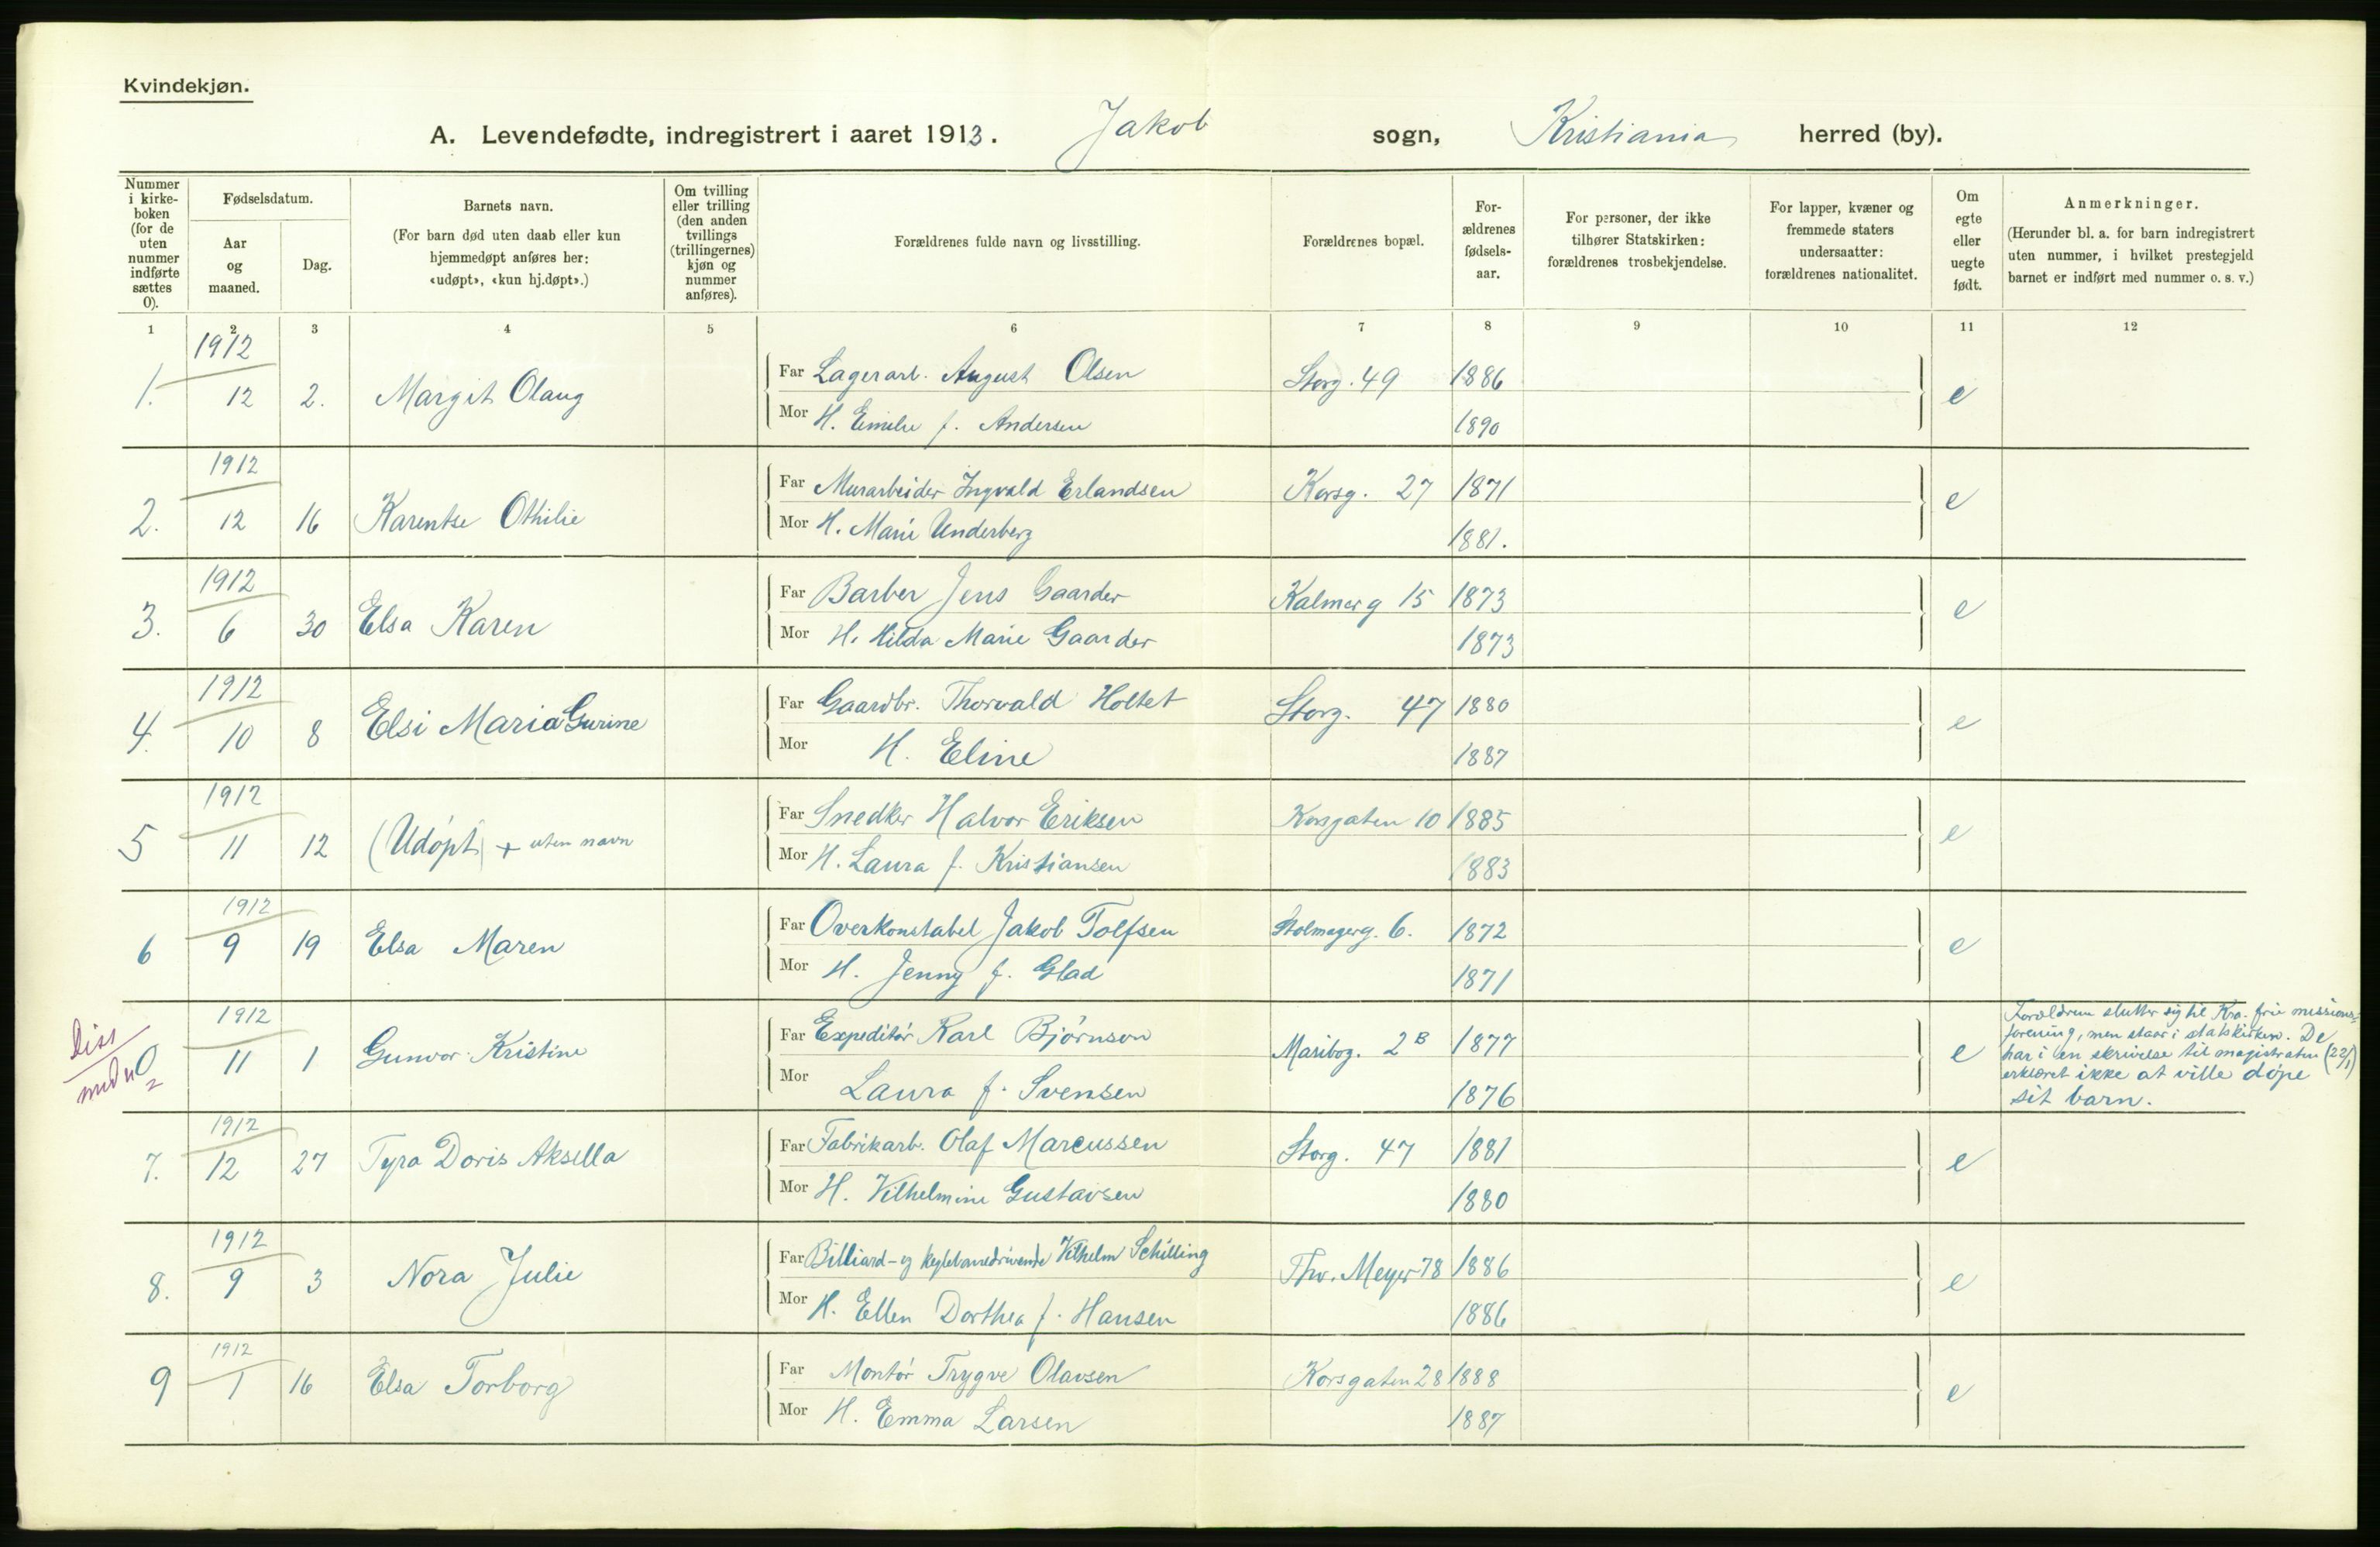 Kvindekjøn.
A. Levendefødte, indregistrert i aaret 1913. Jakob sogn, Kristiania herred (by).
Nummer i kirke- boken (for de uten nummer indførte sættes 0).
Fødselsdatum.
Aar og maaned.
Dag.
Barnets navn.
(For barn død uten daab eller kun hjemmedøpt anføres her: «udøpt», «kun hj.døpt».)
Om tvilling eller trilling (den anden tvillings (trillingernes) kjøn og nummer anføres).
Forældrenes fulde navn og livsstilling.
Forældrenes bopæl.
For- ældrenes fødsels- aar.
For personer, der ikke tilhører Statskirken: forældrenes trosbekjendelse.
For lapper, kvæner og fremmede staters undersaatter: forældrenes nationalitet.
Om egte eller uegte født.
Anmerkninger.
(Herunder bl. a. for barn indregistrert uten nummer, i hvilket prestegjeld barnet er indført med nummer o. s. v.)
1 2 3 4 5 6 7 8 9 10 11 12
1912
1. 12 2. Margit Olaug Far Lagerarb. August Olsen Storg. 49 1886 e
Mor H. Emilie f. Andersen 1890
1912
2. 12 16 Karentse Othilie Far Murarbeider Ingvald Erlandsen Korsg. 27 1871 e
Mor H. Marie Underberg 1881.
1912
3. 6 30 Elsa Karen Far Barber Jens Gaarder Kalmarg 15 1873 e
Mor H. Hilda Marie Gaarder 1873
1912
4. 10 8 Elsi Maria Gurine Far Gaardbr. Thorvald Holtet Storg. 47 1880 e
Mor H. Eline 1887
1912
5 11 12 (Udøpt) + uten navn Far Snedker Halvor Eriksen Korsgaten 10 1885 e
Mor H. Laura f. Kristiansen 1883
1912
6 9 19 Elsa Maren Far Overkonstabel Jakob Tolfsen Stolmagerg. 6. 1872 e
Mor H. Jenny f. Glad 1871
1912
Diss
0 11 1 Gunvor Kristine Far Expeditør Karl Bjørnson Maribog. 2B 1877 e
Mor Laura f. Svensen 1876
Forældrene slutter sig til Kra. frie missions-
forening, men staar i statskirken. De
har i en skrivelse til magistraten (22/1)
erklæret ikke at ville døpe
sit barn.
1912
7. 12 27 Tyra Doris Aksella Far Fabrikarb. Olaf Marcussen Storg. 47 1881 e
Mor H. Vilhelmine Gustavsen 1880
1912
8. 9 3 Nora Julie Far Billiard- og keglebanedrivende Vilhelm Schilling Thv. Meyer 78 1886 e
Mor H. Ellen Dorthea f. Hansen 1886
1912
9 1 16 Elsa Torborg Far Montør Trygve Olavsen Korsgaten 28 1888 e
Mor H. Emma Larsen 1887